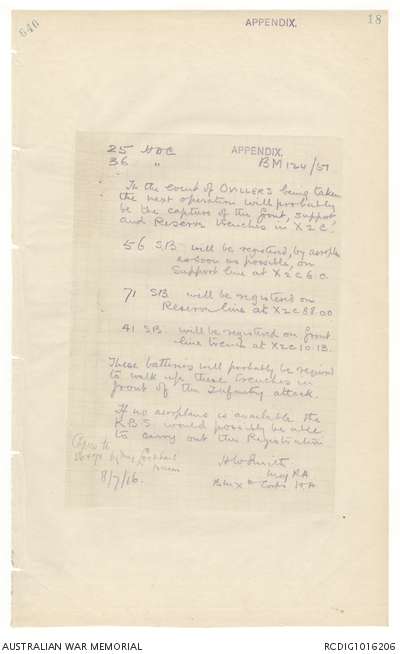 640
APPENDIX.
18
25 HDC
36 "
APPENDIX.
BM 124/51
In the event of OVILLERS being taken
the next operation will probably
be the capture of the front, support
and Reserve trenches in X2C.
56 SB. will be registered, by aeroplane
as soon as possible, on
Support line at X2C 6.0.
71 SB. will be registered on
Reserve line at X2C 88.00
41 SB. will be registered on front
line trench at X2C 10.13.
These batteries will probably be required
to walk up these trenches in
front of the Infantry attack.
If no aeroplane is available the
K.B.S. would possibly be able
to carry out this Registration
Copies to
8/7/16.
HW Smith
Maj RA
BM X Corps HA
AUSTRALIAN WAR MEMORIAL
RCDIG1016206